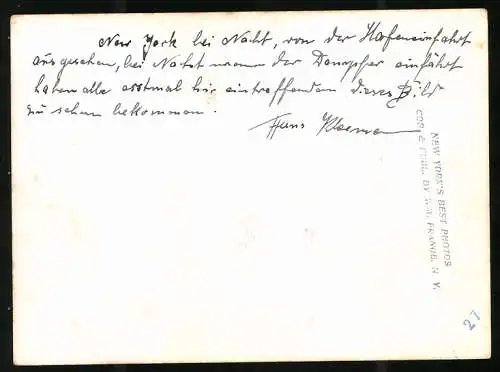 New York bei Nacht, von der Hafeneinfahrt
ausgesehen, bei Nacht wenn der Dampfer einfährt
haben alle erstmal hier eintreffenden dieses Bild
zu sehen bekommen.
Hans
NEW YORK'S BEST PHOTOS
COP. & PUBL. BY W.A. FRANGE, N. Y.
27